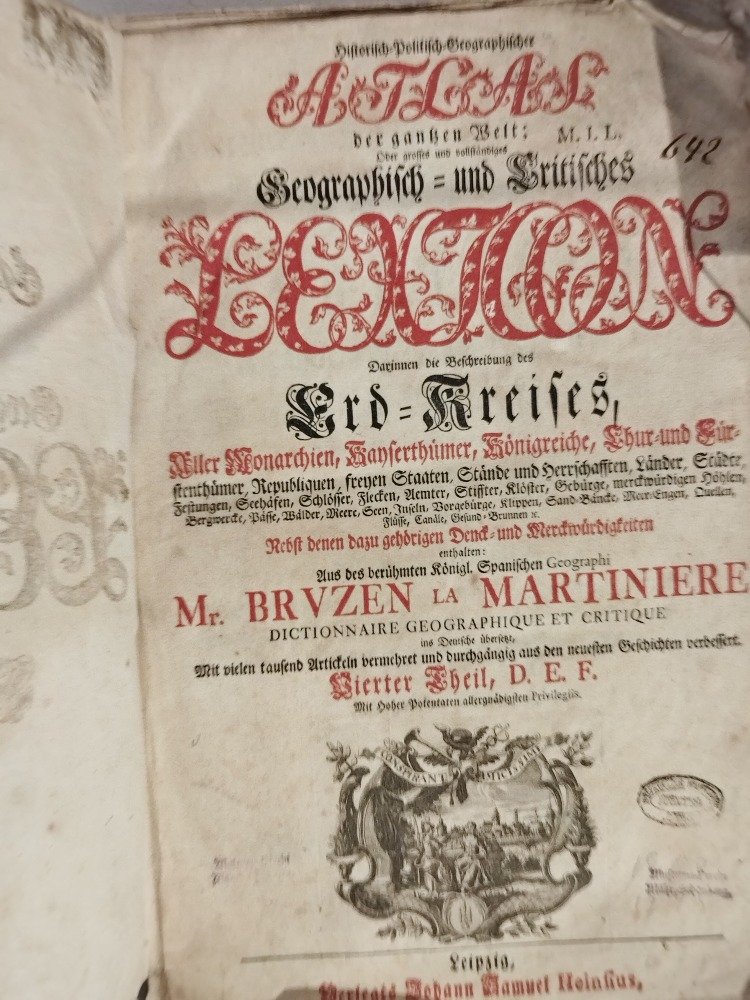 Historisch-Politisch-Geographischer
ATLAS
der gantzen Welt:
M. I. L.
642
Oder grosses und vollständiges
Geographisch- und Critisches
LEXICON
Darinnen die Beschreibung des
Erd-Kreises,
Aller Monarchien, Kayserthümer, Königreiche, Chur- und Für-
stenthümer, Republiquen, freyen Staaten, Stände und Herrschafften, Länder, Städte,
Festungen, Seehäfen, Schlösser, Flecken, Aemter, Stiffter, Klöster, Gebürge, merckwürdigen Höhlen,
Bergwercke, Pässe, Wälder, Meere, Seen, Inseln, Vorgebürge, Klippen, Sand-Bäncke, Meer-Engen, Quellen,
Flüsse, Canäle, Gesund-Brunnen ꝛc.
Nebst denen dazu gehörigen Denck- und Merckwürdigkeiten
enthalten:
Aus des berühmten Königl. Spanischen Geographi
Mr. BRVZEN LA MARTINIERE
DICTIONNAIRE GEOGRAPHIQUE ET CRITIQUE
ins Deutsche übersetzt,
Mit vielen tausend Artickeln vermehret und durchgängig aus den neuesten Geschichten verbessert.
Vierter Theil, D. E. F.
Mit Hoher Potentaten allergnädigsten Privilegiis.
CONSPIRANT
Leipzig,
Verlegts Johann Samuel Heinsius,